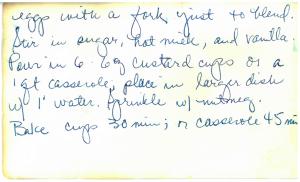 eggs with a fork just to blend.
Stir in sugar, hot milk, and vanilla.
Pour in 6 6oz custard cups or a
1 qt casserole, place in larger dish
w/ 1" water. Sprinkle w/ nutmeg.
Bake cups 30 min; or casserole 45 min